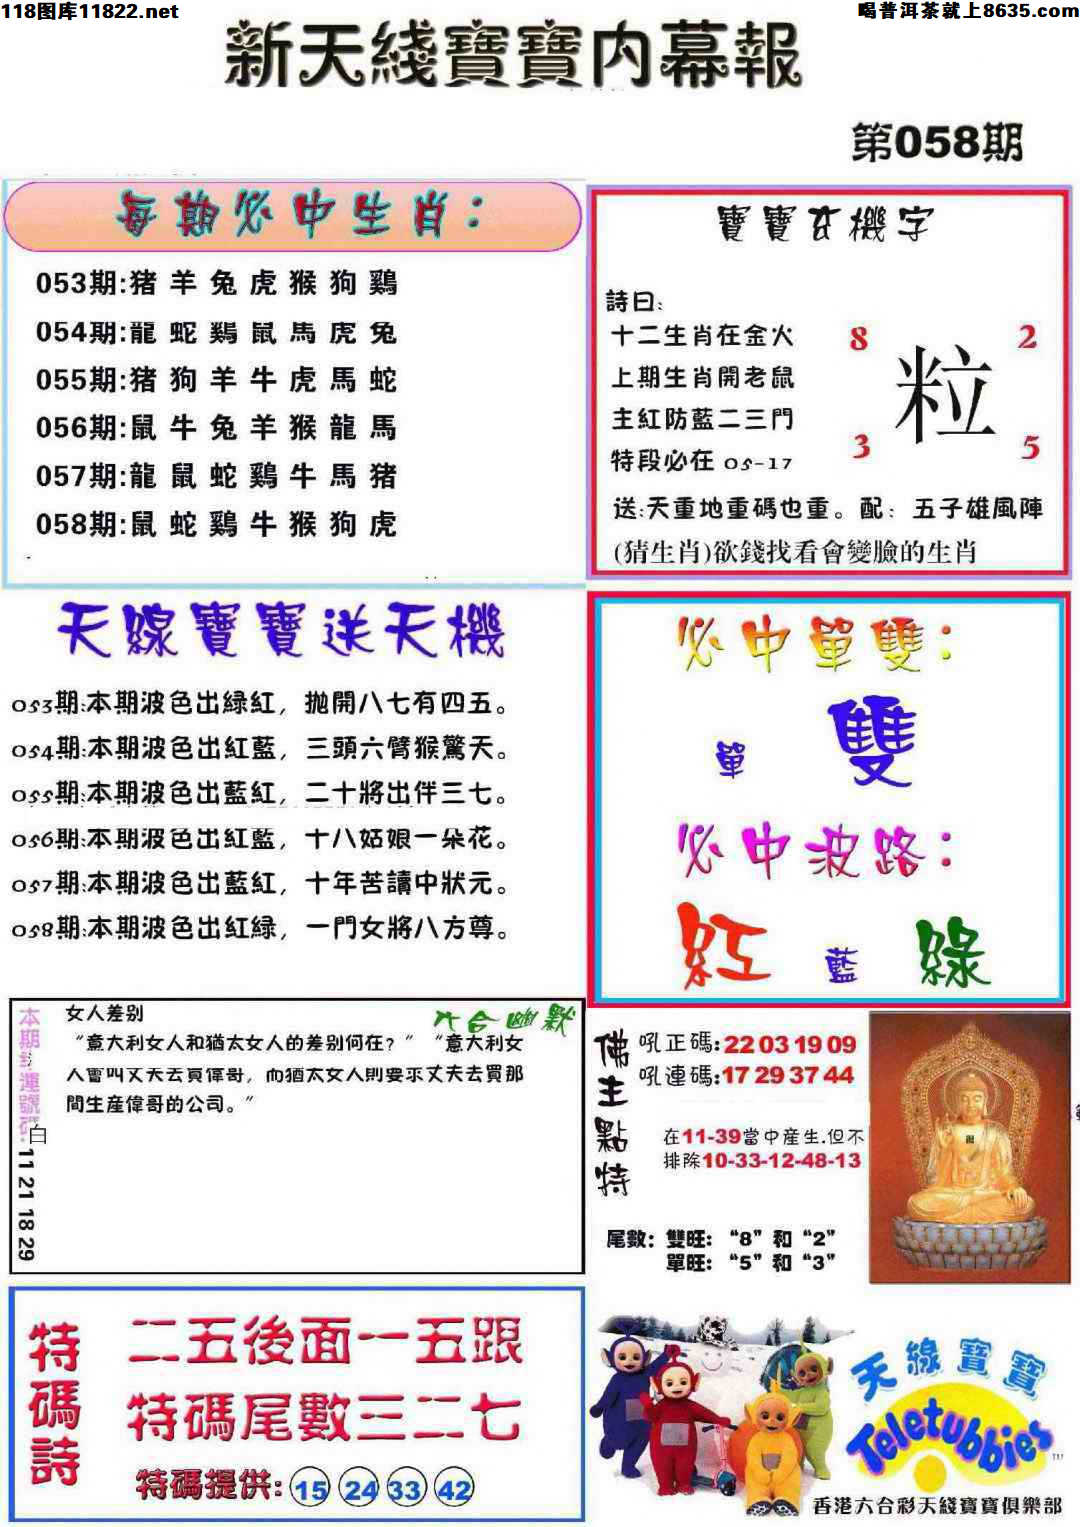 118图库11822.net
喝普洱茶就上8635.com
新天綫寶寶内幕報
第058期
每期必中生肖：
053期:猪 羊 兔 虎 猴 狗 鷄
054期:龍 蛇 鷄 鼠 馬 虎 兔
055期:猪 狗 羊 牛 虎 馬 蛇
056期:鼠 牛 兔 羊 猴 龍 馬
057期:龍 鼠 蛇 鷄 牛 馬 猪
058期:鼠 蛇 鷄 牛 猴 狗 虎
寶寶玄機字
詩曰:
十二生肖在金火
上期生肖開老鼠
主紅防藍二三門
特段必在 05-17
8 2
粒
3 5
送:天重地重碼也重。配：五子雄風陣
(猜生肖)欲錢找看會變臉的生肖
天線寶寶送天機
053期:本期波色出緑紅，抛開八七有四五。
054期:本期波色出紅藍，三頭六臂猴驚天。
055期:本期波色出藍紅，二十將出伴三七。
056期:本期波色出紅藍，十八姑娘一朵花。
057期:本期波色出藍紅，十年苦讀中狀元。
058期:本期波色出紅緑，一門女將八方尊。
必中單雙：
單 雙
必中波路：
紅 藍 綠
本期 運號
白
11 21 18 29
六合幽默
女人差别
“意大利女人和猶太女人的差别何在？” “意大利女
人會叫丈夫去買偉哥，而猶太女人則要求丈夫去買那
間生産偉哥的公司。”
佛主點特
吼正碼:22 03 19 09
吼連碼:17 29 37 44
在11-39當中産生.但不
排除10-33-12-48-13
尾數：雙旺：“8”和“2”
單旺：“5”和“3”
特碼詩
二五後面一五跟
特碼尾數三二七
特碼提供: 15 24 33 42
天線寶寶
Teletubbies
TM
香港六合彩天綫寶寶俱樂部